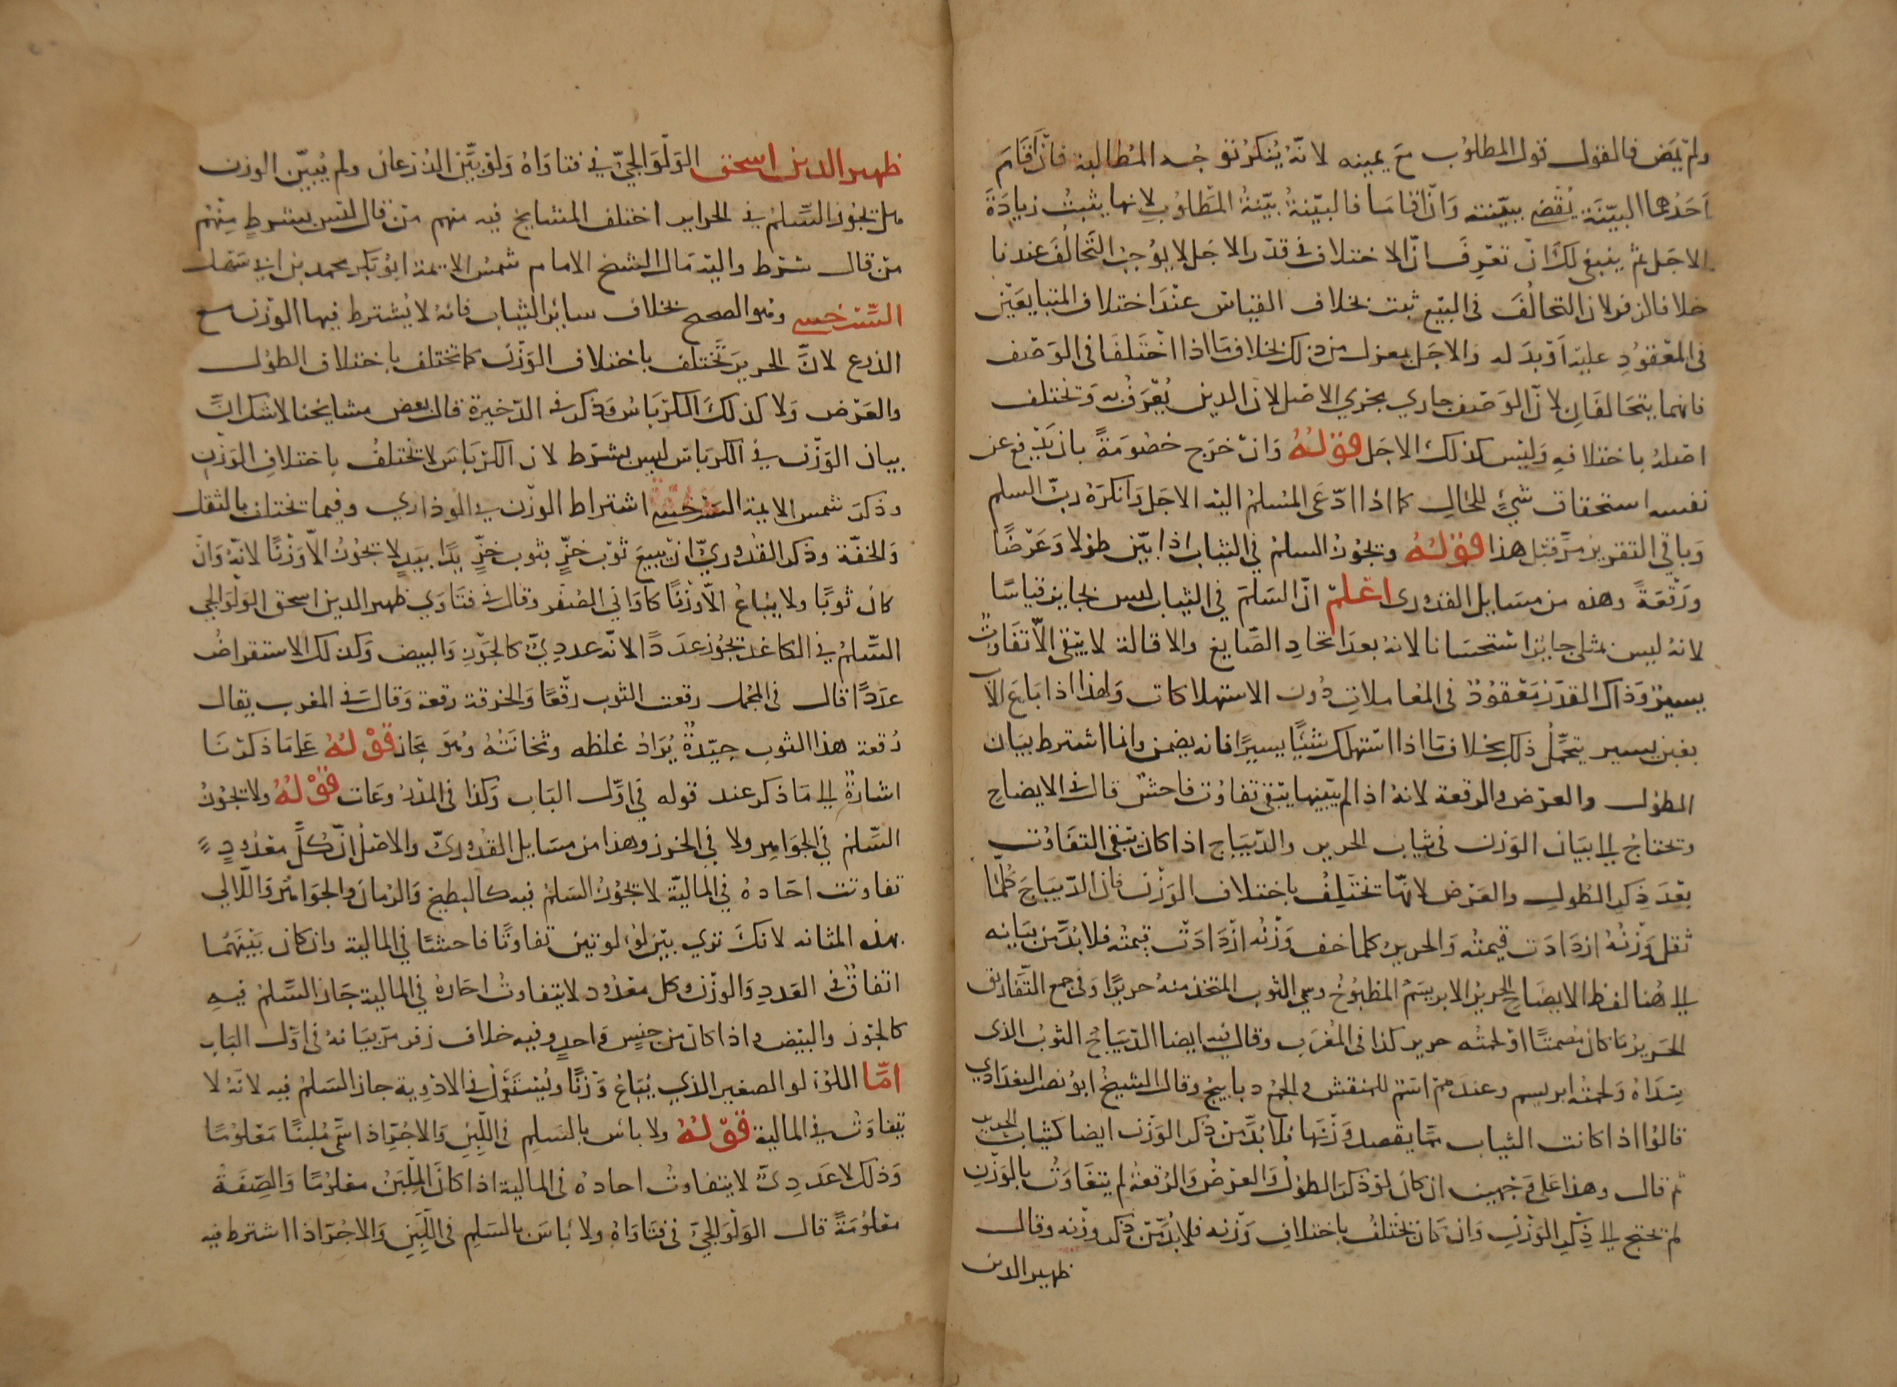 ولم يمض فالقول قول المطلوب مع يمينه لانه ينكر توجه المطالبة فان اقام
احدهما البينة يقضى ببينته وان اقاما فالبينة بينة المطلوب لانها يثبت زيادة
الاجل ثم ينبغي لك ان تعرف ان الاختلاف في قدر الاجل لا يوجب التحالف عندنا
خلافا لزفر لان التحالف في البيع ثبت بخلاف القياس عند اختلاف المتبايعين
في المعقود عليه او بدله والاجل بمعزل من ذلك بخلاف ما اذا اختلفا في الوصف
فانهما يتحالفان لان الوصف جاري مجري الاصل لان الدين يعرف به وتختلف
اصله باختلافه وليس كذلك الاجل قوله وان خرج خصومة بان يدفع عن
نفسه استحقاق شيء للحال كما اذا ادعى المسلم اليه الاجل وانكره رب السلم
وباقي التقرير مر قبل هذا قوله ويجوز السلم في الثياب اذا بين طولا وعرضا
ورقعة وهذه من مسايل القدوري اعلم ان السلم في الثياب ليس بجايز قياسا
لانه ليس بمثلي جايز استحسانا لانه بعد اتحاد الصايغ والاقالة لا يبقى الا تفاوت
يسير وذاك القدر معقود في المعاملات دون الاستهلاكات ولهذا اذا باع الاب
بغبن يسير يتحمل ذلك بخلاف ما اذا استهلك شيئا يسيرا فانه يضمن وانما اشترط بيان
الطول والعرض والرقعة لانه اذا لم يبينها يبقى تفاوت فاحش قال في الايضاح
وتحتاج الى بيان الوزن في ثياب الحرير والديباج اذا كان يبقى التفاوت
بعد ذكر الطول والعرض لانها تختلف باختلاف الوزن فان الديباج كلما
ثقل وزنه ازدادت قيمته والحرير كلما خف وزنه ازدادت قيمته فلا بد من بيانه
الى هنا لفظ الايضاح الحرير الابريسم المطبوخ وسمي الثوب المتخذ منه حريرا وفي جمع التفاريق
الحرير ما كان مصمتا او لحمته حرير كذا في المغرب وقال فيه ايضا الديباج الثوب الذي
سداه ولحمته ابريسم وعندهم اسم للمنقش والجمع دبابيج وقال الشيخ ابو نصر البغدادي
قالوا اذا كانت الثياب مما يقصد وزنها فلا بد من ذكر الوزن ايضا كثياب الحرير
ثم قال وهذا على وجهين ان كان لو ذكر الطول والعرض والرقعة لم يتفاوت بالوزن
لم تحتج الى ذكر الوزن وان كان يختلف باختلاف وزنه فلا بد من ذكر وزنه وقال
ظهير الدين
ظهير الدين اسحق الولوالجي في فتاواه ولو بين الذرعان ولم يبين الوزن
هل يجوز السلم في الحرير اختلف المشايخ فيه منهم من قال ليس بشرط ومنهم
من قال شرط واليه مال الشيخ الامام شمس الايمة ابو بكر محمد بن ابي سهل
السرخسي وهو الصحيح بخلاف سائر الثياب فانه لا يشترط فيها الوزن مع
الذرع لان الحرير تختلف باختلاف الوزن كما تختلف باختلاف الطول
والعرض ولا كذلك الكرباس وذكر في الذخيرة قال بعض مشايخنا لا شك ان
بيان الوزن في الكرباس ليس بشرط لان الكرباس لا تختلف باختلاف الوزن
وذكر شمس الايمة السرخسي اشتراط الوزن في الوذاري وفيما تختلف بالثقل
والخفة وذكر القدوري ان بيع ثوب خز بثوب خز يدا بيد لا يجوز الا وزنا لانه وان
كان ثوبا ولا يباع الا وزنا كاواني الصفر وقال في فتاوي ظهير الدين اسحق الولوالجي
السلم في الكاغد يجوز عددا لانه عددي كالجوز والبيض وكذلك الاستقراض
عددا قال في المجمل رقعت الثوب رقعا والخرقة رقعة وقال في المغرب يقال
رقعة هذا الثوب جيدة يراد غلظه وثخانته وهو مجاز قوله على ما ذكرنا
اشارة الى ما ذكر عند قوله في اول الباب وكذا في المذروعات قوله ولا يجوز
السلم في الجواهر ولا في الخرز وهذا من مسايل القدوري والاصل ان كل معدود
تفاوتت احاده في المالية لا يجوز السلم فيه كالبطيخ والرمان والجواهر واللآلي
بهذه المثابة لانك تري بين لؤلوتين تفاوتا فاحشا في المالية وان كان بينهما
اتفاق في العدد والوزن وكل معدود لا يتفاوت احاده في المالية جاز السلم فيه
كالجوز والبيض واذا كان من جنس واحد وفيه خلاف زفر مر بيانه في اول الباب
اما اللؤلو الصغير الذي يباع وزنا ويستعمل في الادوية جاز السلم فيه لانه لا
يتفاوت في المالية قوله ولا باس بالسلم في اللبن والاجر اذا سمى ملبنا معلوما
وذلك لا عددي لا يتفاوت احاده في المالية اذا كان الملبن معلوما والصفة
معلومة قال الولوالجي في فتاواه ولا باس بالسلم في اللبن والاجر اذا اشترط فيه